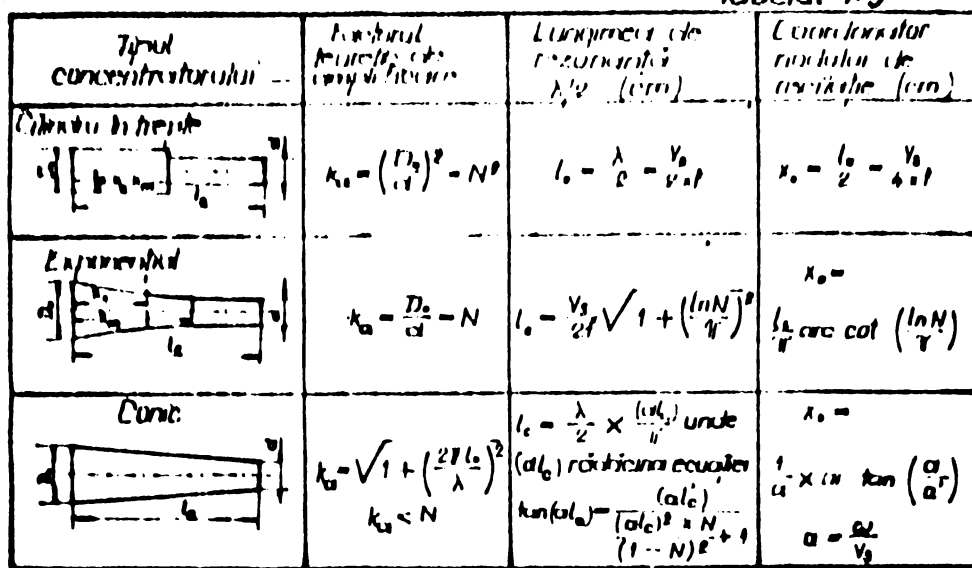 Tipul
concentratorului
Factorul
teoretic de
amplificare
Lungimea de
rezonanță
λ/2 (cm)
Coordonator
nodului de
oscilație (cm)
Cilindru în trepte
l_a
k_a = (D_0/d)^2 = N^2
l_0 = λ/2 = V_0/2×f
x_0 = l_0/2 = V_0/4×f
Exponențial
l_a
k_a = D_0/d = N
l_0 = V_g/2f √1 + (lnN/π)^2
x_0 =
l_a/π arc cot (lnN/π)
Conic
l_a
k_a = √1 + (2πl_0/λ)^2
k_a < N
l_c = λ/2 × (αl_c)/π unde
(αl_c) rădăcina ecuației
tan(αl_a) = (αl_c)/((αl_c)^2 × N/(1 - N)^2 + 1)
x_0 =
tan (α/a
α = ω/V_g